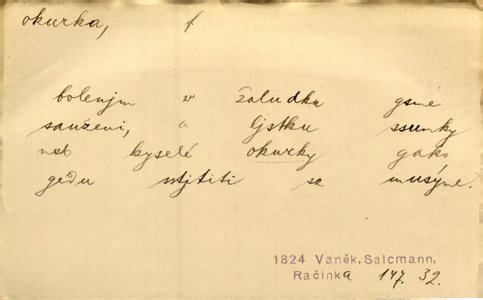 okurka, f
bolenjm w žaludku gsme
sauženi, a ljstku ssunky
neb kyselé okurky gako
gedu sstjtiti se musýme.
1824 Vaněk, Salcmann,
Račinka 147. 32.